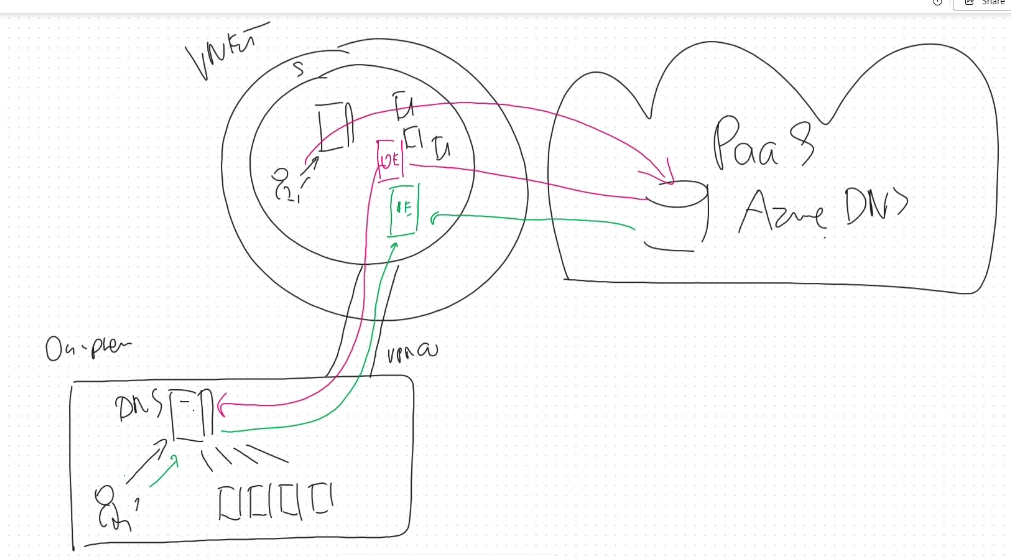 Share
VNET
S
PaaS
OE
IE
Azure DNS
On-prem
VPN GW
DNS